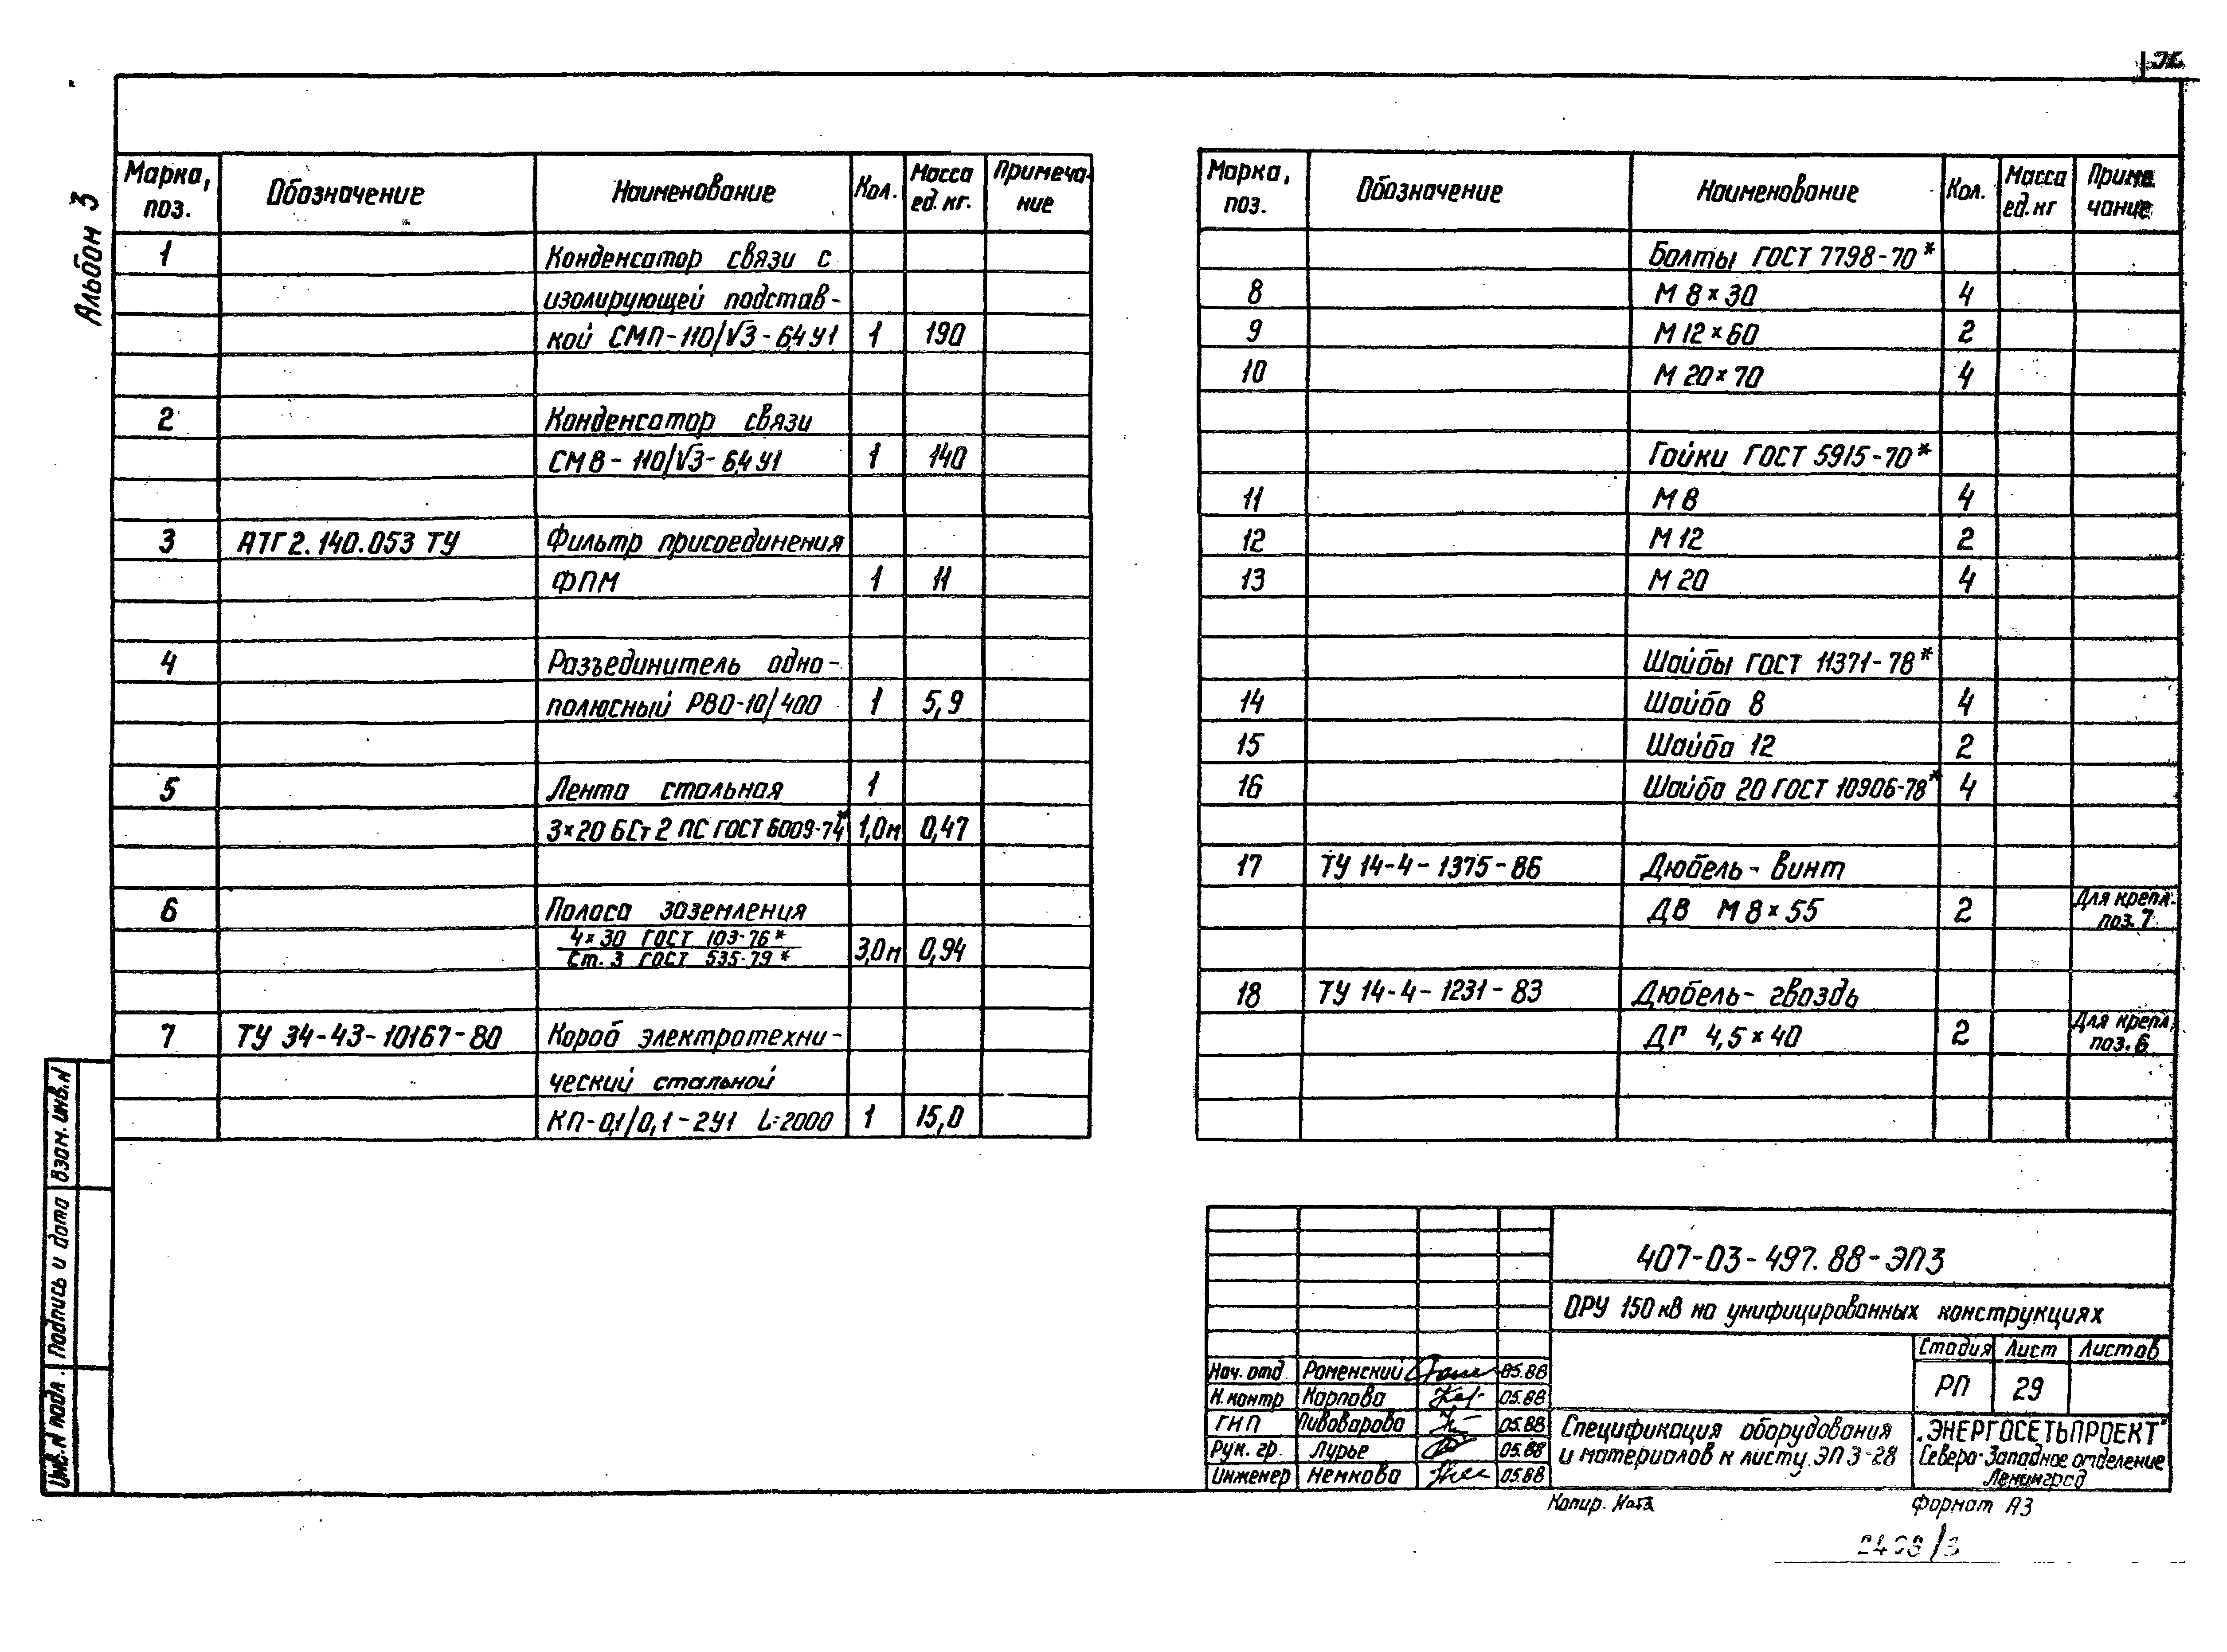 Альбом 3
Марка, поз. Обозначение Наименование Кол. Масса ед. кг. Примечание
1 Конденсатор связи с
изолирующей подстав-
кой СМП-110/√3-6,4 У1 1 190
2 Конденсатор связи
СМВ-110/√3-6,4 У1 1 140
3 АТГ2.140.053 ТУ Фильтр присоединения
ФПМ 1 11
4 Разъединитель одно-
полюсный РВО-10/400 1 5,9
5 Лента стальная 1
3×20 БСт 2 ПС ГОСТ 6009-74* 1,0м 0,47
6 Полоса заземления
4×30 ГОСТ 103-76*
Ст. 3 ГОСТ 535-79* 3,0м 0,94
7 ТУ 34-43-10167-80 Короб электротехни-
ческий стальной
КП-0,1/0,1-2У1 L=2000 1 15,0
Марка, поз. Обозначение Наименование Кол. Масса ед. кг Приме чание
Болты ГОСТ 7798-70*
8 М 8×30 4
9 М 12×60 2
10 М 20×70 4
Гайки ГОСТ 5915-70*
11 М 8 4
12 М 12 2
13 М 20 4
Шайбы ГОСТ 11371-78*
14 Шайба 8 4
15 Шайба 12 2
16 Шайба 20 ГОСТ 10906-78* 4
17 ТУ 14-4-1375-86 Дюбель-винт
ДВ М 8×55 2 Для крепл. поз. 7
18 ТУ 14-4-1231-83 Дюбель-гвоздь
ДГ 4,5×40 2 Для крепл. поз. 6
Взам. инв. N
Подпись и дата
Инв. N подл.
407-03-497.88-ЭП3
ОРУ 150 кВ на унифицированных конструкциях
Стадия Лист Листов
РП 29
Нач. отд. Роменский 05.88
Н. контр Карпова 05.88
ГИП Пивоварова 05.88
Рук. гр. Лурье 05.88
Инженер Немкова 05.88
Спецификация оборудования
и материалов к листу ЭП 3-28
„ЭНЕРГОСЕТЬПРОЕКТ"
Северо-Западное отделение
Ленинград
Копир.
Формат А3